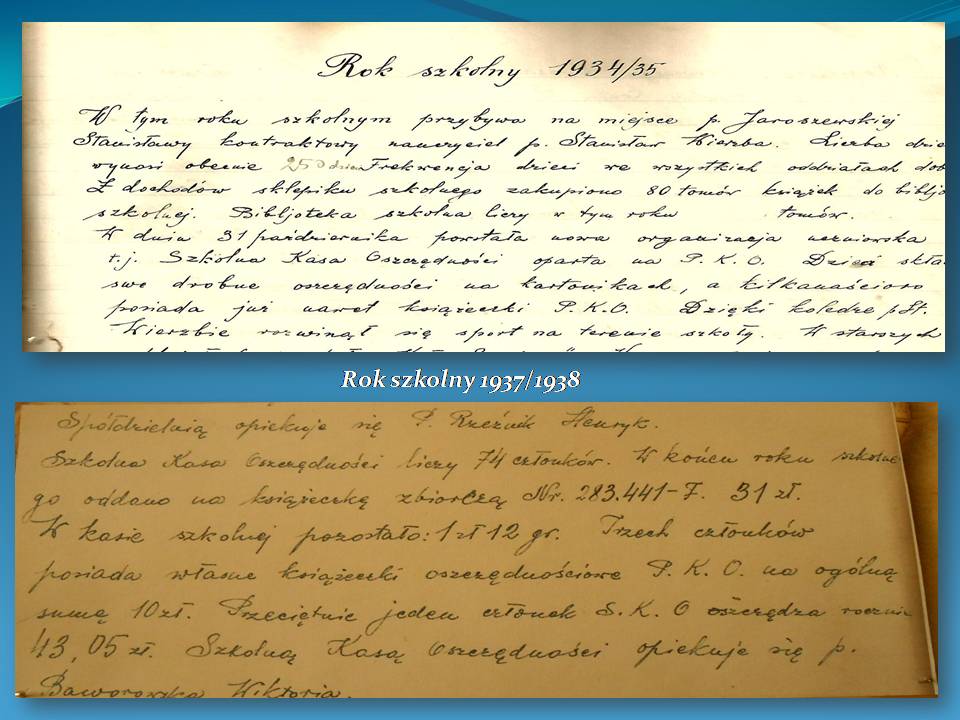 Rok szkolny 1934/35
W tym roku szkolnym przybywa na miejsce p. Jaroszewskiej
Stanisławy kontraktowy nauczyciel p. Stanisław Wierzba. Liczba dzie
wynosi obecnie 250 dzieci Frekwencja dzieci we wszystkich oddziałach dob
Z dochodów sklepiku szkolnego zakupiono 80 tomów książek do bibljo
szkolnej. Bibljoteka szkolna liczy w tym roku tomów.
W dniu 31 października powstała nowa organizacja uczniowska
t.j. Szkolna Kasa Oszczędności oparta na P. K. O. Dzieci skła
swe drobne oszczędności na kartonikach, a kilkanaścioro
posiada już nawet książeczki P.K.O. Dzięki koledze p. St.
Wierzbie rozwinął się sport na terenie szkoły. W starszych
Rok szkolny 1937/1938
Spółdzielnią opiekuje się P. Rzeźnik Henryk.
Szkolna Kasa Oszczędności liczy 74 członków. W końcu roku szkolne
go oddano na książeczkę zbiorczą Nr. 283.441-F. 31 zł.
W kasie szkolnej pozostało: 1 zł 12 gr. Trzech członków
posiada własne książeczki oszczędnościowe P. K. O. na ogólną
sumę 10 zł. Przeciętnie jeden członek S. K. O oszczędza rocznie
43,05 zł. Szkolną Kasą Oszczędności opiekuje się p.
Baworowska Wiktoria.